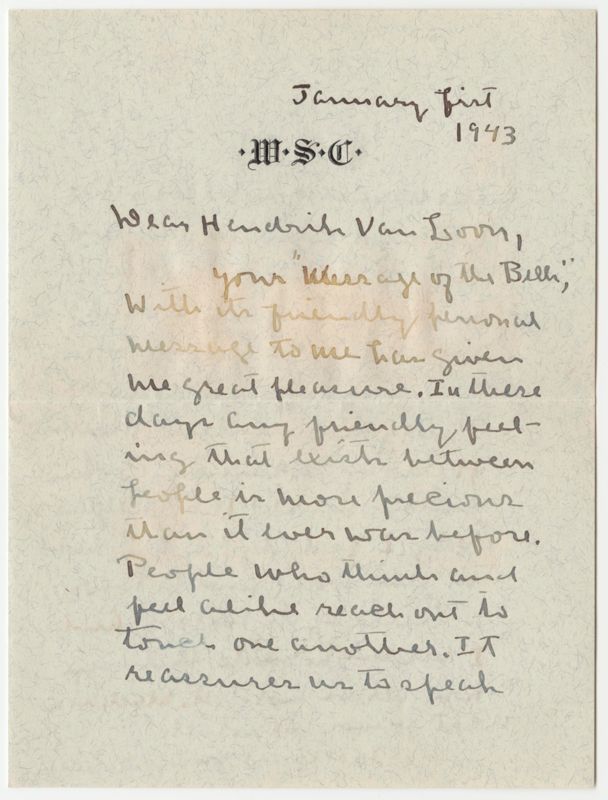 January first
1943
·W·S·C·
Dear Hendrik Van Loon,
your "Message of the Bells,"
With its friendly personal
message to me has given
me great pleasure. In these
days any friendly feel-
ing that exists between
people is more precious
than it ever was before.
People who think and
feel alike reach out to
touch one another. It
reassures us to speak